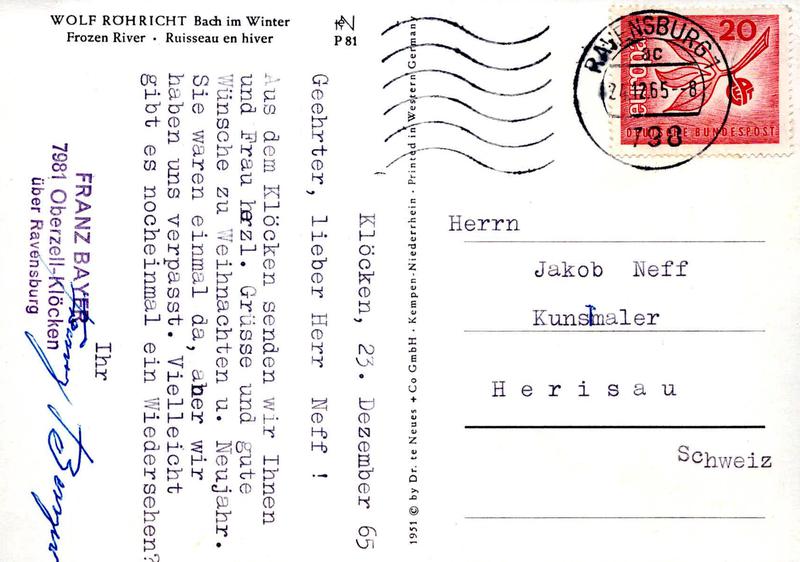 WOLF RÖHRICHT Bach im Winter
Frozen River · Ruisseau en hiver
P 81
Klöcken, 23. Dezember 65
Geehrter, lieber Herr Neff !
Aus dem Klöcken senden wir Ihnen
und Frau herzl. Grüsse und gute
Wünsche zu Weihnachten u. Neujahr.
Sie waren einmal da, aber wir
haben uns verpasst. Vielleicht
gibt es nocheinmal ein Wiedersehen?
Ihr
Franz Bayer
FRANZ BAYER
7981 Oberzell-Klöcken
über Ravensburg
1951 © by Dr. te Neues + Co GmbH · Kempen-Niederrhein · Printed in Western Germany
RAVENSBURG 1
ac
24.12.65--8
798
20
europa
DEUTSCHE BUNDESPOST
Herrn
Jakob Neff
Kunstmaler
Herisau
Schweiz